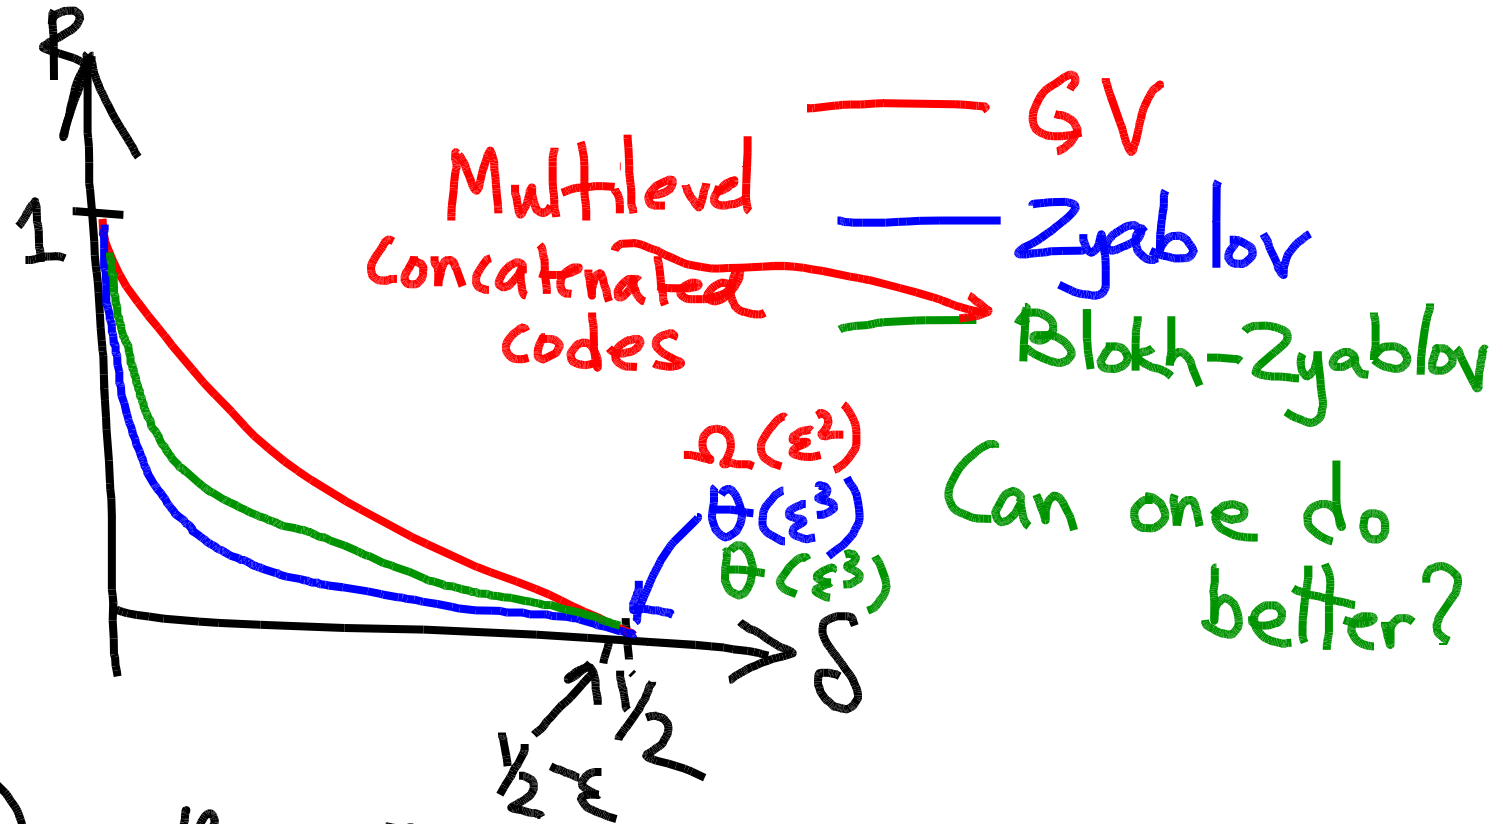 R
1
Multilevel
Concatenated
codes
GV
Zyablov
Blokh-Zyablov
Ω(ε²)
θ(ε³)
θ(ε³)
Can one do
better?
δ
1/2
1/2-ε